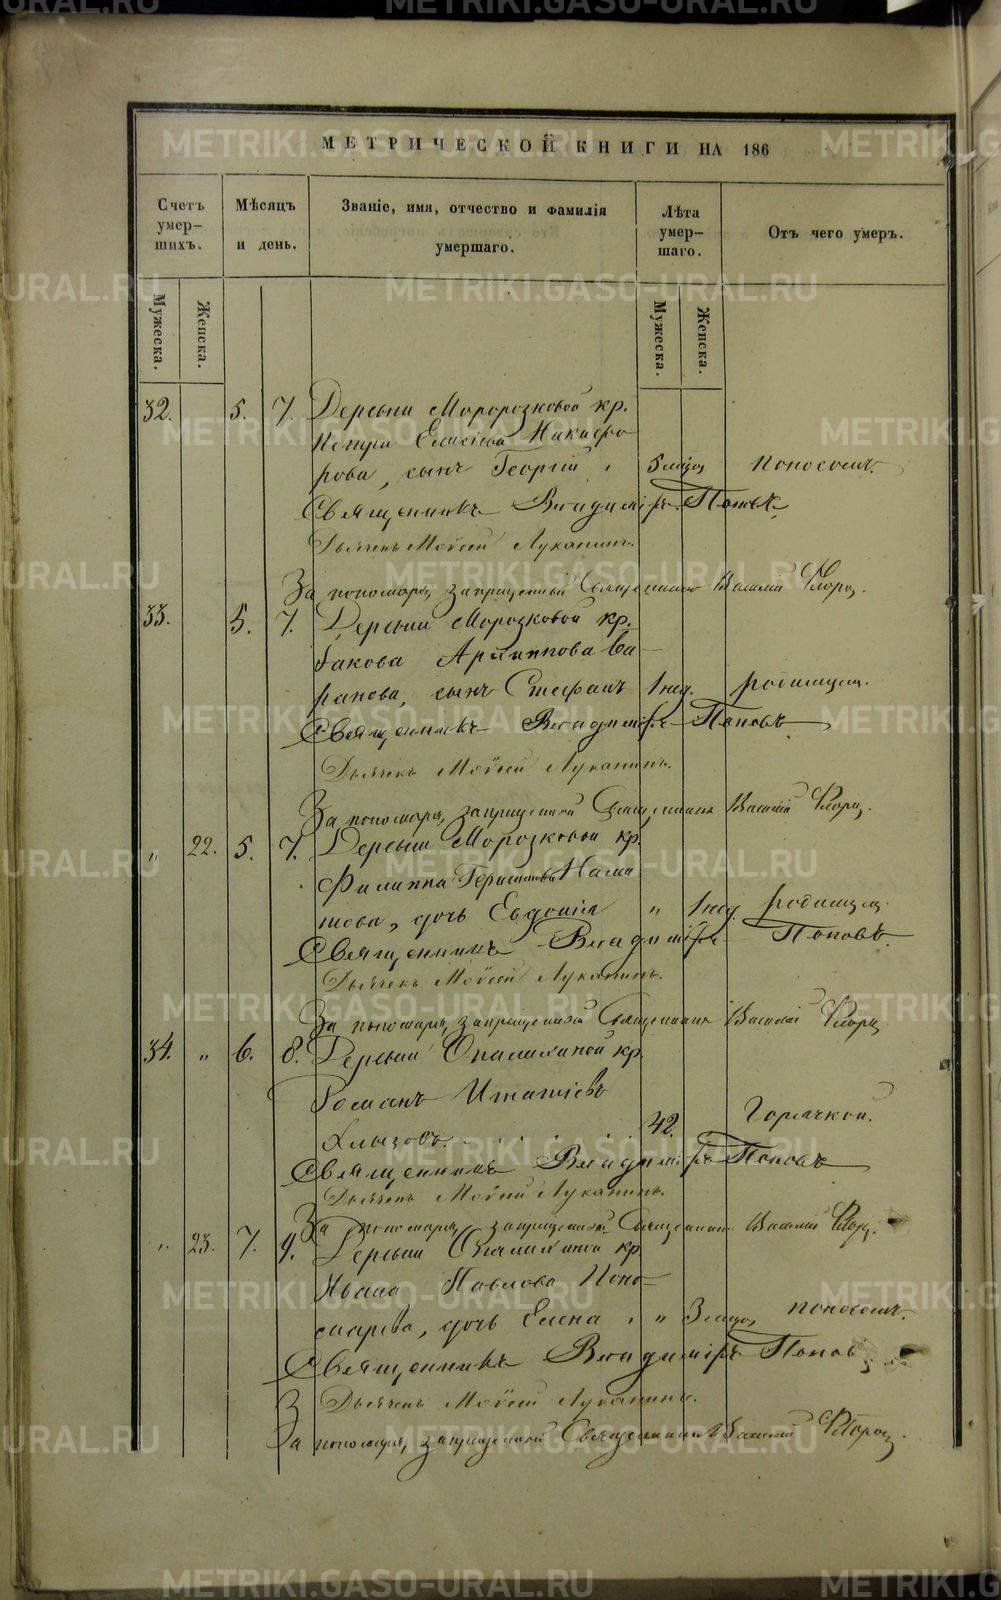 МЕТРИЧЕСКОЙ КНИГИ НА 186
Счетъ умер-шихъ.
Мѣсяцъ и день.
Званіе, имя, отчество и фамилія умершаго.
Лѣта умер-шаго.
Отъ чего умеръ.
Мужеска.
Женска.
Мужеска.
Женска.
32. 5. 7. Деревни Моророзковой кр.
Петра Елисѣева Никифо
рова, сынъ Георгій, 5 мѣсяц поносомъ.
Священникъ Владиміръ Поповъ
Дьячекъ Мойсей Луканинъ.
За пономаря, запрещенный Священникъ Василій Флоро
33. 5. 7. Деревни Морозковой кр.
Іакова Архиппова Ва-
ранова, сынъ Стефанъ 1 нед. родимцемъ.
Священникъ Владиміръ Поповъ
Дьячекъ Мойсей Луканинъ.
За пономаря, запрещенный Священникъ Василій Флоро
„ 22. 5. 7. Деревни Морозковой кр.
Филиппа
дочь Евдокія „ 1 нед. родимцем
Священникъ Владиміръ Поповъ
Дьячекъ Мойсей Луканинъ.
За пономаря, запрещенный Священникъ Василій Флоро
34. „ 6. 8. Деревни Опалихиной кр.
Романъ Игнатіевъ
Хлызовъ. 42. Горячкой.
Священникъ Владиміръ Поповъ
Дьячекъ Мойсей Луканинъ.
За пономаря, запрещенный Священникъ Василій Флоро
„ 23. 7. 9. Деревни Опалихиной кр.
Ивана Павлова Поно-
марева, дочь Елена, „ 3 мѣсяц поносомъ.
Священникъ Владиміръ Поповъ
Дьячекъ Мойсей Луканинъ.
За пономаря, запрещенный Священникъ Василій Флоро
METRIKI.GASO-URAL.RU